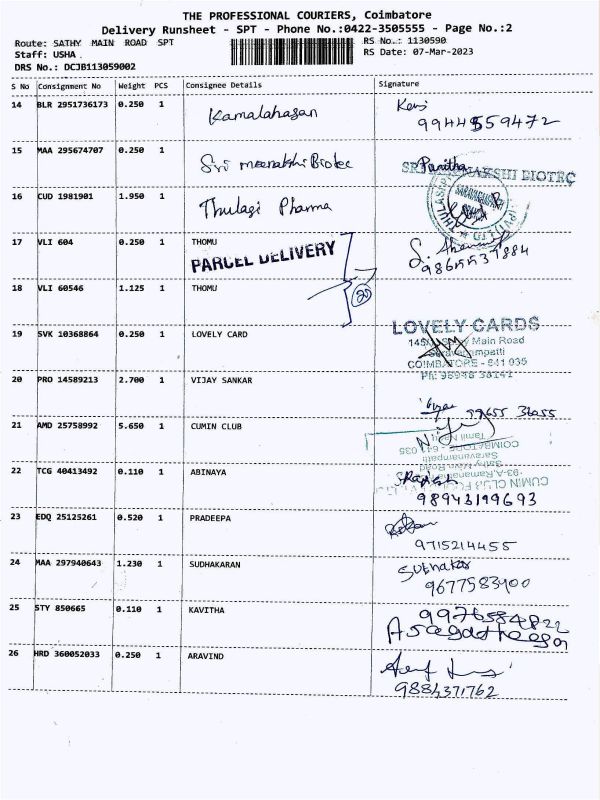 THE PROFESSIONAL COURIERS, Coimbatore
Delivery Runsheet - SPT - Phone No.:0422-3505555 - Page No.:2
Route: SATHY MAIN ROAD SPT
RS No.: 1130590
Staff: USHA .
RS Date: 07-Mar-2023
DRS No.: DCJB113059002
S No Consignment No Weight PCS Consignee Details Signature
14 BLR 2951736173 0.250 1 Kamalahasan
99444559472
15 MAA 295674707 0.250 1 Sri meenakshi Biotec
Panitha
16 CUD 1981901 1.950 1 Thulasi Pharma
17 VLI 604 0.250 1 THOMU
PARCEL DELIVERY
18 VLI 60546 1.125 1 THOMU
20
19 SVK 10368864 0.250 1 LOVELY CARD
LOVELY CARDS
Main Road
COIMBATORE - 641 035
20 PRO 14589213 2.700 1 VIJAY SANKAR
21 AMD 25758992 5.650 1 CUMIN CLUB
Tamil Nadu
COIMBATORE - 641 035
Saravanampatti
Sathy Main Road
22 TCG 40413492 0.110 1 ABINAYA
98943199693
23 EDQ 25125261 0.520 1 PRADEEPA
9715214455
24 MAA 297940643 1.230 1 SUDHAKARAN
Sudhakar
9677583900
25 STY 850665 0.110 1 KAVITHA
9976584822
26 HRD 360052033 0.250 1 ARAVIND
9884371762